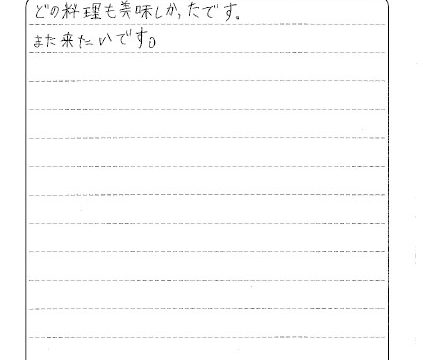 どの料理も美味しかったです。
また来たいです。